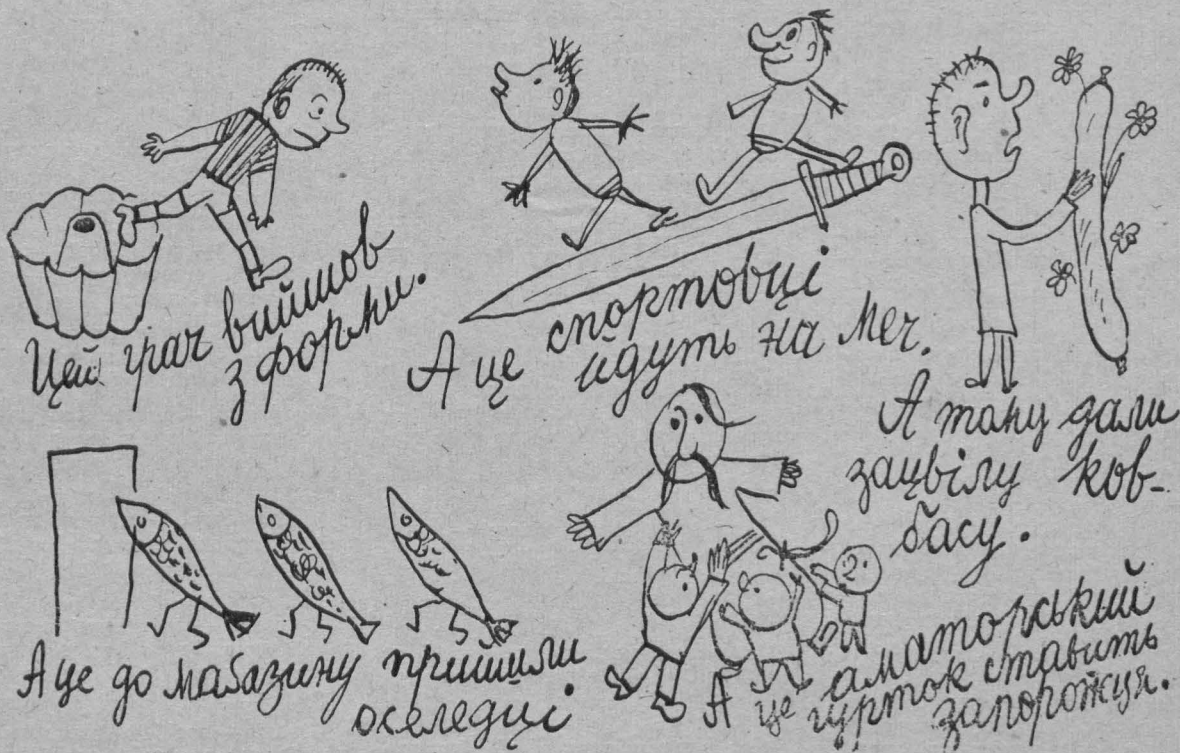 Цей грач вийшов
з форми.
А це спортовці
йдуть на меч.
А тому дали
зацвілу ков-
басу.
А це до магазину прийшли
оселедці
А це аматорський
гурток ставить
запорожця.